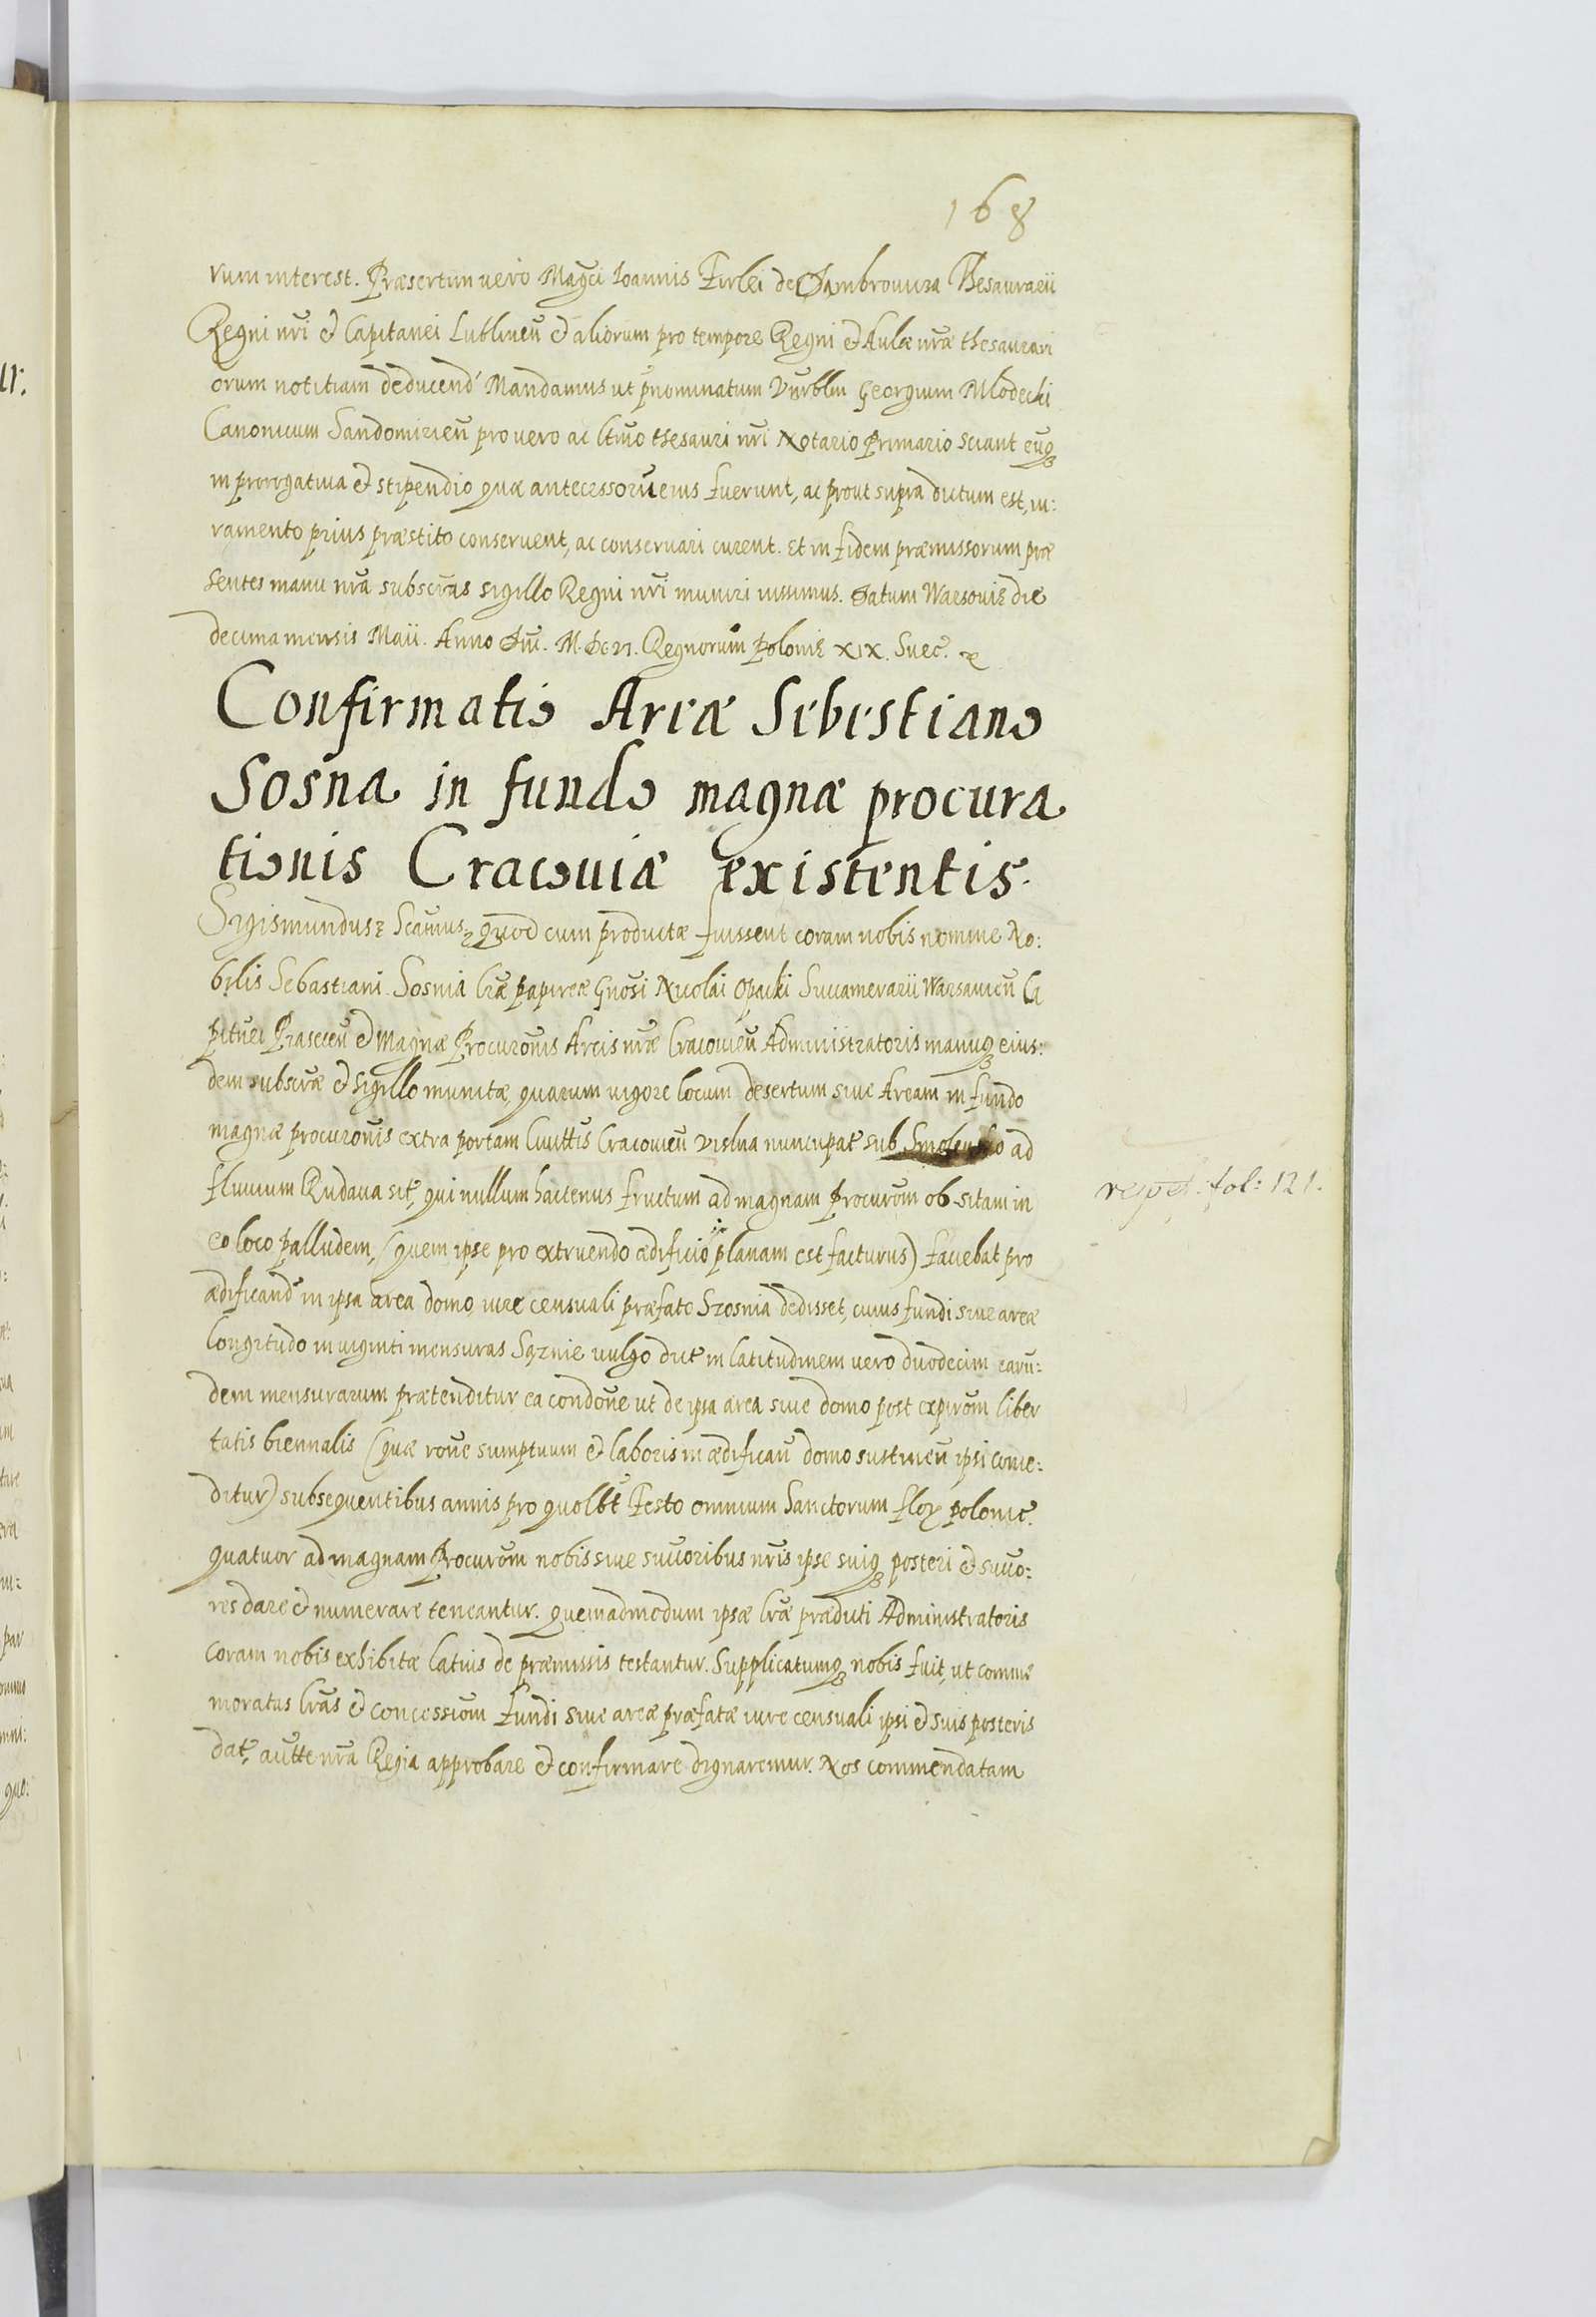 168
rum interest. Præsertim vero Magci Ioannis Firlei de Dambrowica Thesaurarii
Regni nri et Capitanei Lublineñ et aliorum pro tempore Regni et Aulæ nræ thesaurari
orum notitiam deducend' Mandamus ut pnominatum Vnrblm Georgium Mlodecki
Canonicum Sandomirieñ pro vero ac ltimo thesauri nri Notario Primario sciant euq3
in prorogatiua et stipendio quæ antecessorũ eius fuerunt, ac prout supra dictum est, iu:
ramento prius præstito conseruent, ac conseruari curent. Et in fidem præmissorum præ
sentes manu nra subscras sigillo Regni nri muniri iussimus. Datum Warsouiæ die
decima mensis Maii. Anno Dni. M. DC VI. Regnorum Poloniæ XIX. Suec.
Confirmatio Areæ Sebestiano
Sosna in fundo magnæ procura
tionis Cracouiæ existentis.
Sigismundus Scamus quod cum productæ fuissent coram nobis nomine No:
bilis Sebastiani Sosnia lræ papireæ Gnosi Nicolai Opacki Succamerarii Warsauieñ Ca
pitnei Praseceñ et Magnæ Procuronis Arcis nræ Cracouieñ Administratoris manuq3 eius:
dem subscræ et sigillo munitæ, quarum vigore locum desertum siue Aream in fundo
magnæ procuronis extra portam Ciuittis Cracouieñ Vislna nuncupat sub Smolensko ad
fluuium Rudaua sit, qui nullum hactenus fructum ad magnam Procurom ob sitam in
eo loco palludem, (quem ipse pro extruendo ædificio planam est facturus) faciebat pro
ædificand in ipsa area domo, iure censuali præfato Szosnia dedisset, cuius fundi siue areæ
longitudo in viginti mensuras Sążnie vulgo dict in latitudinem vero duodecim earũ:
dem mensurarum prætenditur ea condone ut de ipsa area siue domo post expirom liber
tatis biennalis (quæ rone sumptuum et laboris in ædificañ domo sustineñ ipsi conce:
ditur) subsequentibus annis pro quolbt Festo omnium Sanctorum flox polonic.
quatuor ad magnam Procurom nobis siue succoribus nris ipse suiq3 posteri et succo:
res dare et numerare teneantur. quemadmodum ipsæ lræ prædicti Administratoris
coram nobis exhibitæ latius de præmissis testantur. Supplicatumq3 nobis fuit, ut comme
moratas lras et concessiom fundi siue areæ præfatæ iure censuali ipsi et suis posteris
dat, autte nra Regia approbare et confirmare dignaremur. Nos commendatam
fol: 121.